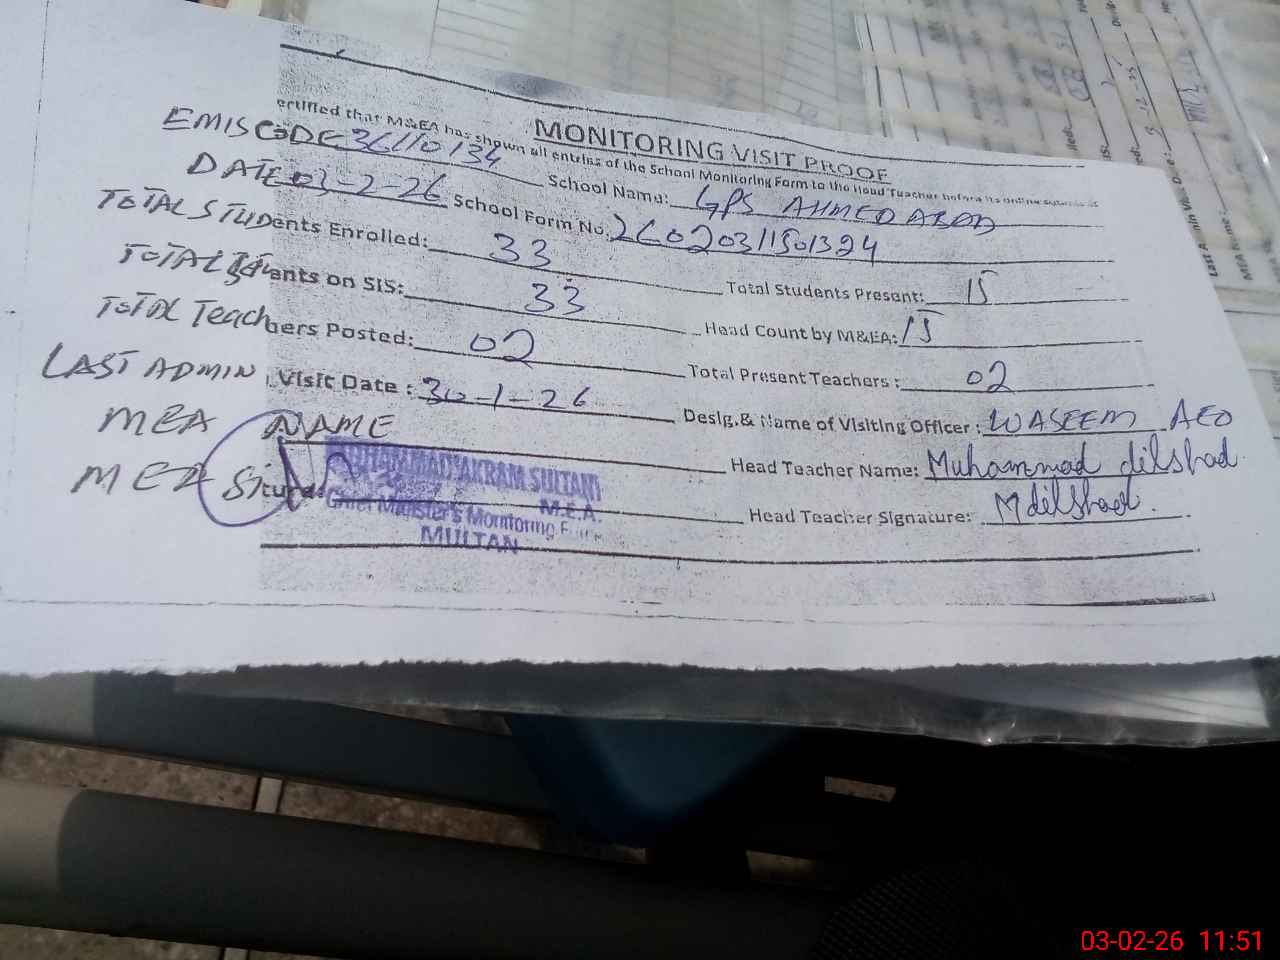 MONITORING VISIT PROOF
ertified that M&EA has shown all entries of the School Monitoring Form to the Head Teacher before its online
EMIS CODE 36110134 School Name: GPS AHMEDABAD
DATE 03-2-26 School Form No. 26020311501324
TOTAL STUDents Enrolled: 33 Total Students Present: 15
TOTAL ants on SIS: 33 Head Count by M&EA: 15
TOTAL Teachers Posted: 02 Total Present Teachers: 02
LAST ADMIN Visit Date: 30-1-26 Desig.& Name of Visiting Officer: WASEEM AEO
MEA NAME Head Teacher Name: Muhammad dilshad
MEA Head Teacher Signature: M dilshad.
MUHAMMAD AKRAM SULTANI
M.E.A.
Chief Minister's Monitoring Force
MULTAN
03-02-26 11:51